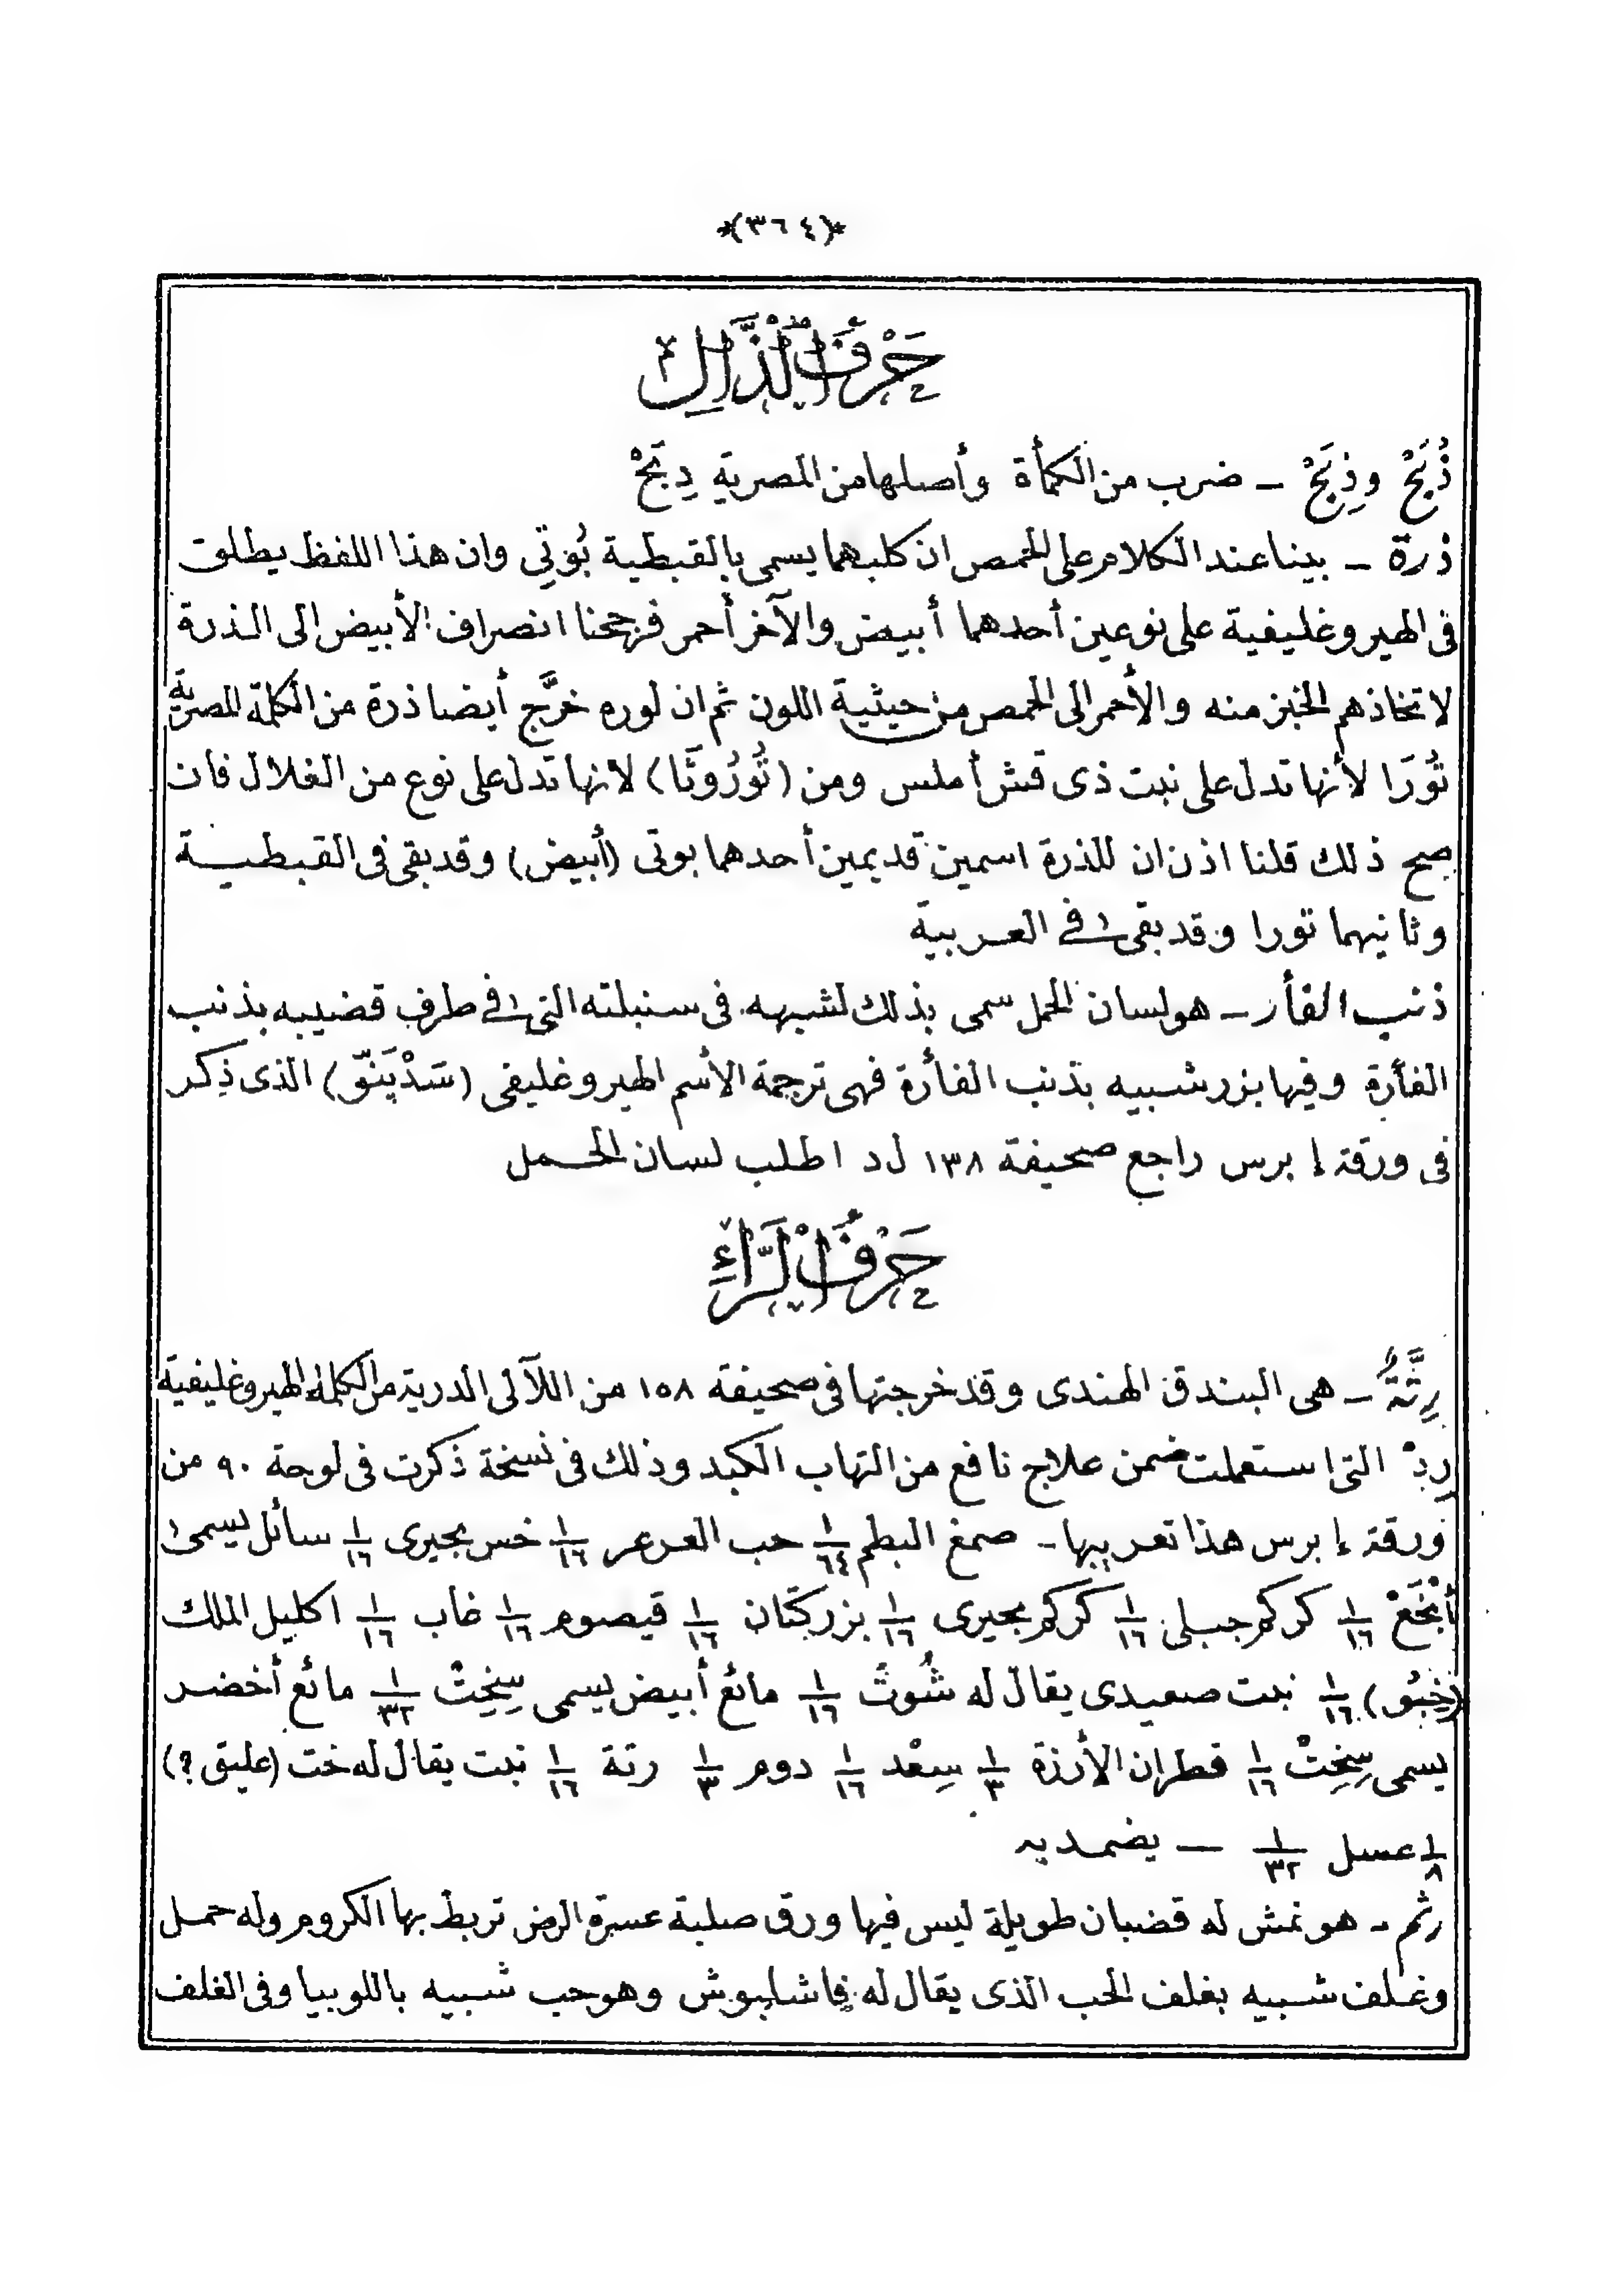 *(٣٦٤)*
حَرْفُ الذَّالِ
ذُبَحْ وذِبَحْ ـ ضرب من الكمأة وأصلها من المصرية دِبَحْ
ذرة ـ بينا عند الكلام على الحمص ان كليهما يسمى بالقبطية بُوتِي وان هذا اللفظ يطلق
فى الهيروغليفية على نوعين أحدهما أبيض والآخر أحمر فرجحنا انصراف الأبيض الى الذرة
لاتخاذهم الخبز منه والأحمر الى الحمص من حيثية اللون ثم ان لوره خرَّج أيضا ذرة من الكلمة المصرية
تُورَا لأنها تدل على نبت ذى قش أملس ومن (تُورُوتَا) لانها تدل على نوع من الغلال فان
صح ذلك قلنا اذن ان للذرة اسمين قديمين أحدهما بوتى (أبيض) وقد بقى فى القبطية
وثانيهما تورا وقد بقى فى العربية
ذنب الفأر ـ هو لسان الحمل سمى بذلك لشبهه فى سنبلته التى فى طرف قضيبه بذنب
الفأرة وفيها بزر شبيه بذنب الفأرة فهى ترجمة الأسم الهيروغليفى (سَدْبَنَوّ) الذى ذِكر
فى ورقة إبرس راجع صحيفة ١٣٨ ل د اطلب لسان الحمل
حَرْفُ الرَّاءِ
رِتَّةٌ ـ هى البندق الهندى وقد خرجتها فى صحيفة ١٥٨ من اللآلى الدرية من الكلمة الهيروغليفية
رِدْ التى استعملت ضمن علاج نافع من التهاب الكبد وذلك فى نسخة ذكرت فى لوحة ٩٠ من
ورقة إبرس هذا تعريبها ـ صمغ البطم ١/٦٤ حب العرعر ١/١٦ خس بحيرى ١/١٦ سائل يسمى
أَنْخَعْ ١/١٦ كركم جبلى ١/١٦ كركم بحيرى ١/١٦ بزر كتان ١/١٦ قيصوم ١/١٦ غاب ١/١٦ اكليل الملك
(خِبُو) ١/١٦ نبت صعيدى يقال له شُوتْ ١/١٦ مائع أبيض يسمى سِخِتْ ١/٣٢ مائع أخضر
يسمى سِخِتْ ١/١٦ قطران الأرزة ١/٣ سِعْد ١/١٦ دوم ١/٣ رتة ١/١٦ نبت يقال له خت (عليق ؟)
١/٨ عسل ١/٣٢ ـ يضمد به
رتم ـ هو نمش له قضبان طويلة ليس فيها ورق صلبة عسرة الرض تربط بها الكروم وله حمل
وغلف شبيه بغلف الحب الذى يقال له فاشليوش وهو حب شبيه باللوبيا وفى الغلف